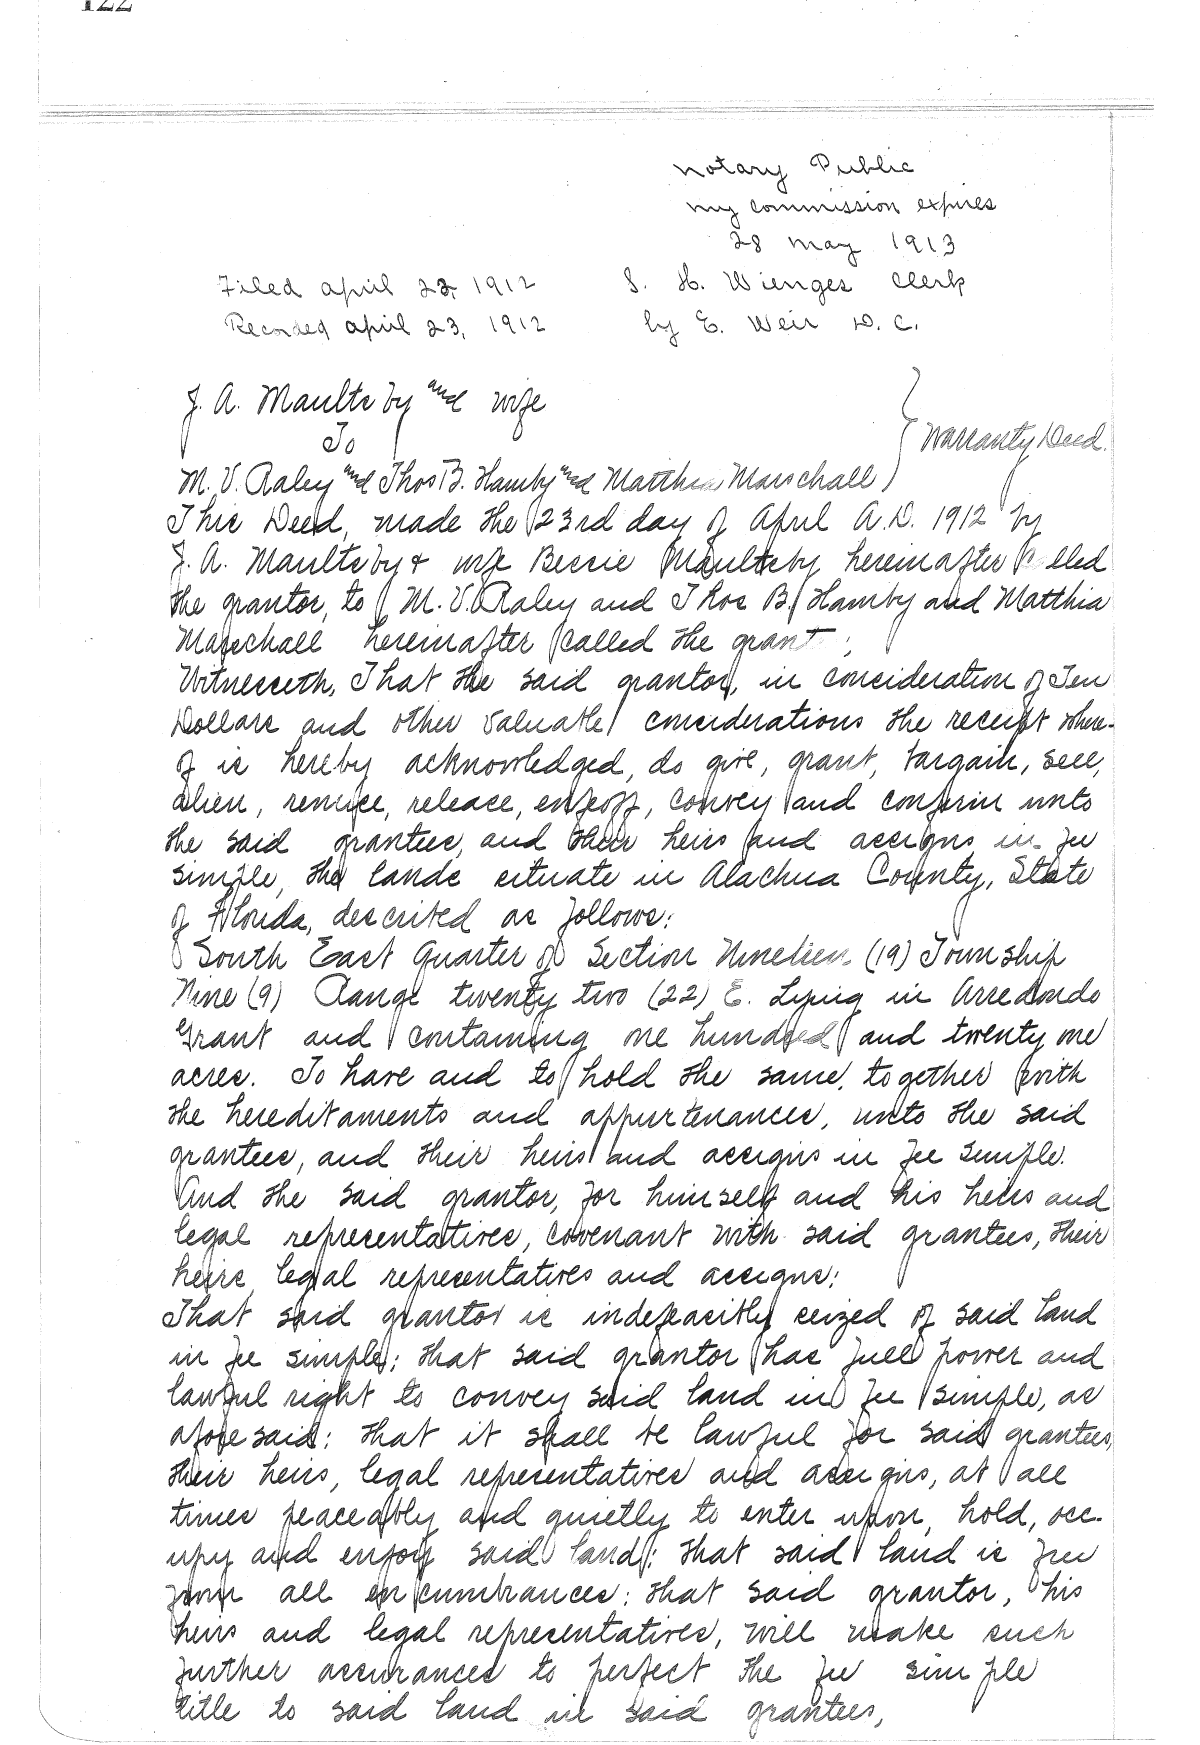 122
Notary Public
My commission expires
28 May 1913
Filed April 23, 1912 S. H. Wienges Clerk
Recorded April 23, 1912 by E. Weir D. C.
J. A. Maultsby and wife
To Warranty Deed.
M. V. Raley and Thos B. Hamby and Matthia Marschall
This Deed, made the 23rd day of April A.D. 1912 by
J. A. Maultsby & wife Bessie Maultsby hereinafter called
the grantor, to M. V. Raley and Thos B. Hamby and Matthia
Marschall hereinafter called the grant ;
Witnesseth, That the said grantor, in consideration of Ten
Dollars and other valuable considerations the receipt where-
of is hereby acknowledged, do give, grant, bargain, sell,
alien, remise, release, enfeoff, convey and confirm unto
the said grantees, and their heirs and assigns in fee
simple, the lands situate in Alachua County, State
of Florida, described as follows:
South East Quarter of Section Nineteen (19) Township
Nine (9) Range twenty two (22) E. Lying in Arredondo
Grant and containing one hundred and twenty one
acres. To have and to hold the same, together with
the hereditaments and appurtenances, unto the said
grantees, and their heirs and assigns in fee simple.
And the said grantor, for himself and his heirs and
legal representatives, covenant with said grantees, their
heirs, legal representatives and assigns:
That said grantor is indefeasibly seized of said land
in fee simple; that said grantor has full power and
lawful right to convey said land in fee simple, as
aforesaid; that it shall be lawful for said grantees,
their heirs, legal representatives and assigns, at all
times peaceably and quietly to enter upon, hold, occ-
upy and enjoy said land; that said land is free
from all encumbrances; that said grantor, his
heirs and legal representatives, will make such
further assurances to perfect the fee simple
title to said land in said grantees,